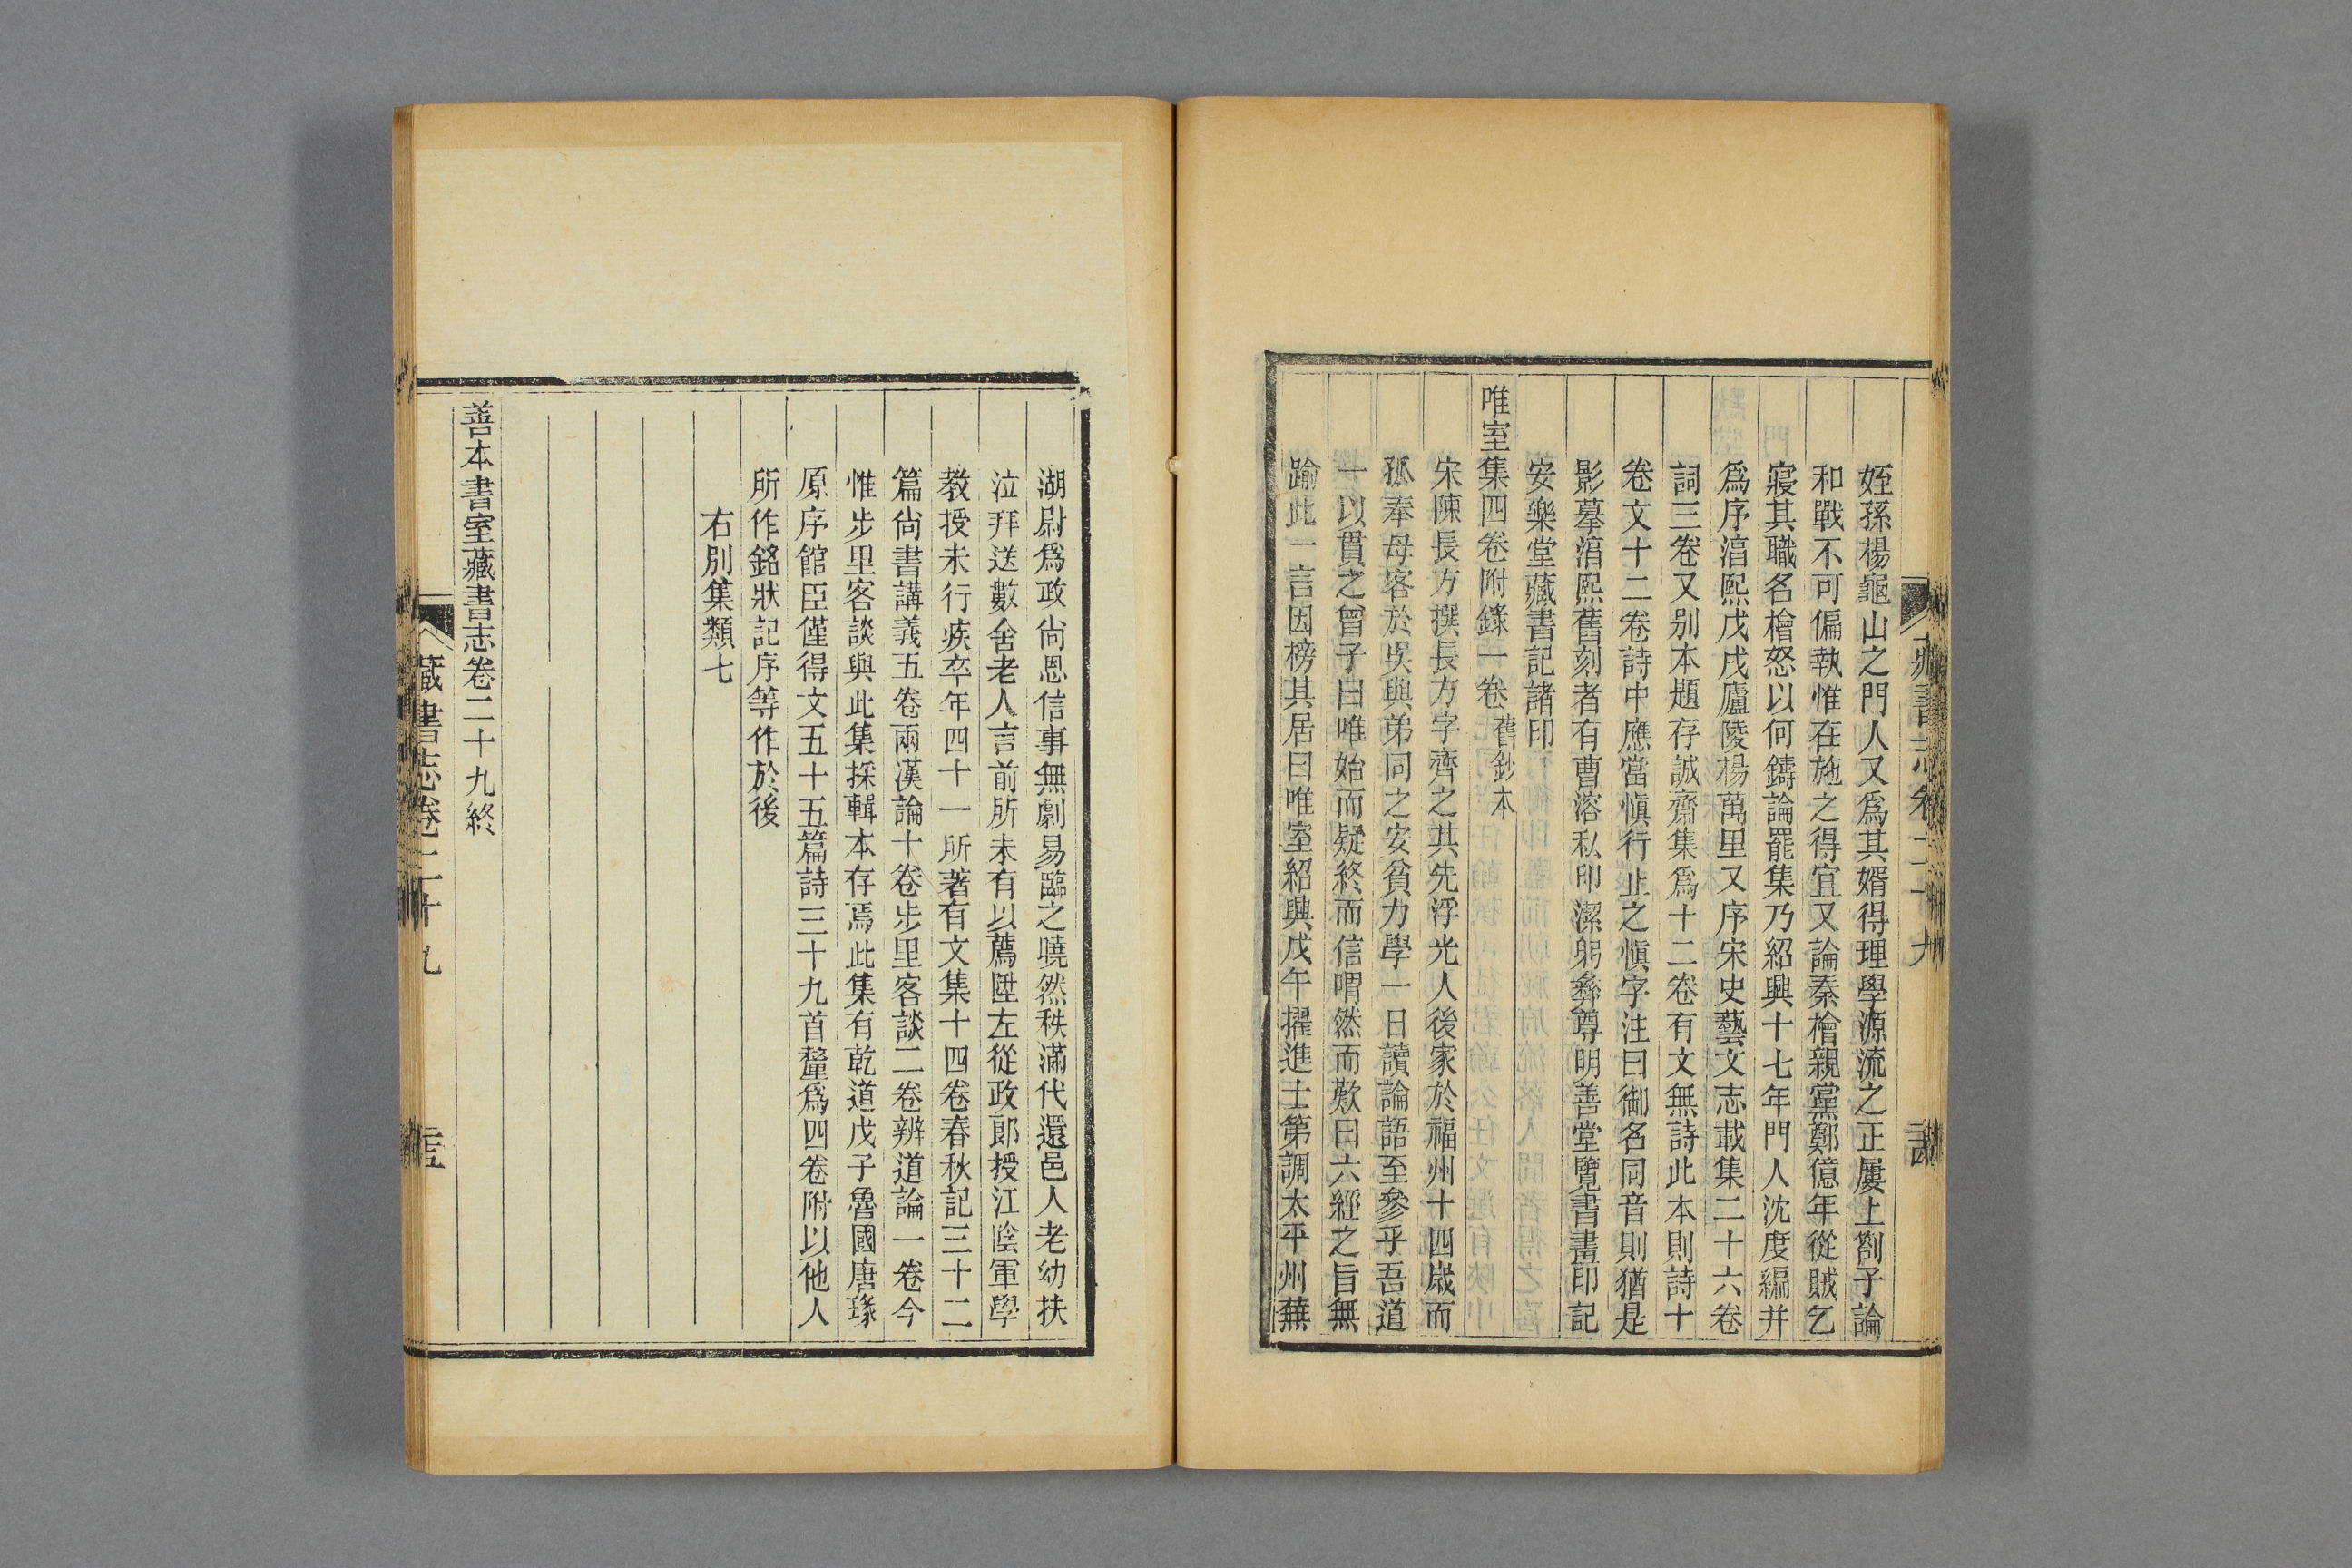 姪孫楊龜山之門人又爲其婿得理學源流之正屢上劄子論
和戰不可偏執惟在施之得宜又論秦檜親黨鄭億年從賊乞
寢其職名檜怒以何鑄論罷集乃紹興十七年門人沈度編并
爲序湻熙戊戌廬陵楊萬里又序宋史藝文志載集二十六卷
詞三卷又别本題存誠齋集爲十二卷有文無詩此本則詩十
卷文十二卷詩中應當愼行止之愼字注曰御名同音則猶是
影摹湻熙舊刻者有曹溶私印潔躬彝尊明善堂覽書畫印記
安樂堂藏書記諸印
唯室集四卷附錄一卷 舊鈔本
宋陳長方撰長方字齊之其先浮光人後家於福州十四歲而
孤奉母客於吳與弟同之安貧力學一日讀論語至參乎吾道
一以貫之曾子曰唯始而疑終而信喟然而歎曰六經之旨無
踰此一言因榜其居曰唯室紹興戊午擢進士第調太平州蕪
湖尉爲政尙恩信事無劇易臨之曉然秩滿代還邑人老幼扶
泣拜送數舍老人言前所未有以薦陞左從政郎授江陰軍學
教授未行疾卒年四十一所著有文集十四卷春秋記三十二
篇尙書講義五卷兩漢論十卷步里客談二卷辨道論一卷今
惟步里客談與此集採輯本存焉此集有乾道戊子魯國唐瑑
原序館臣僅得文五十五篇詩三十九首釐爲四卷附以他人
所作銘狀記序等作於後
右別集類七
善本書室藏書志卷二十九終
藏書志卷二十九